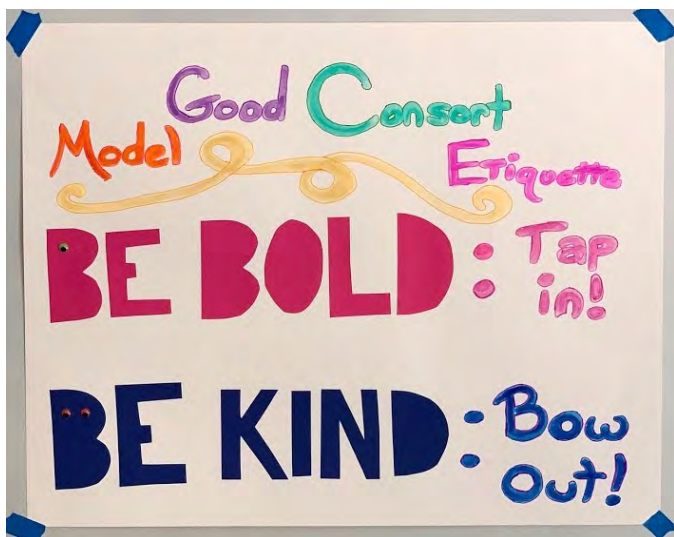 Model Good Consort Etiquette
BE BOLD: Tap in!
BE KIND: Bow Out!